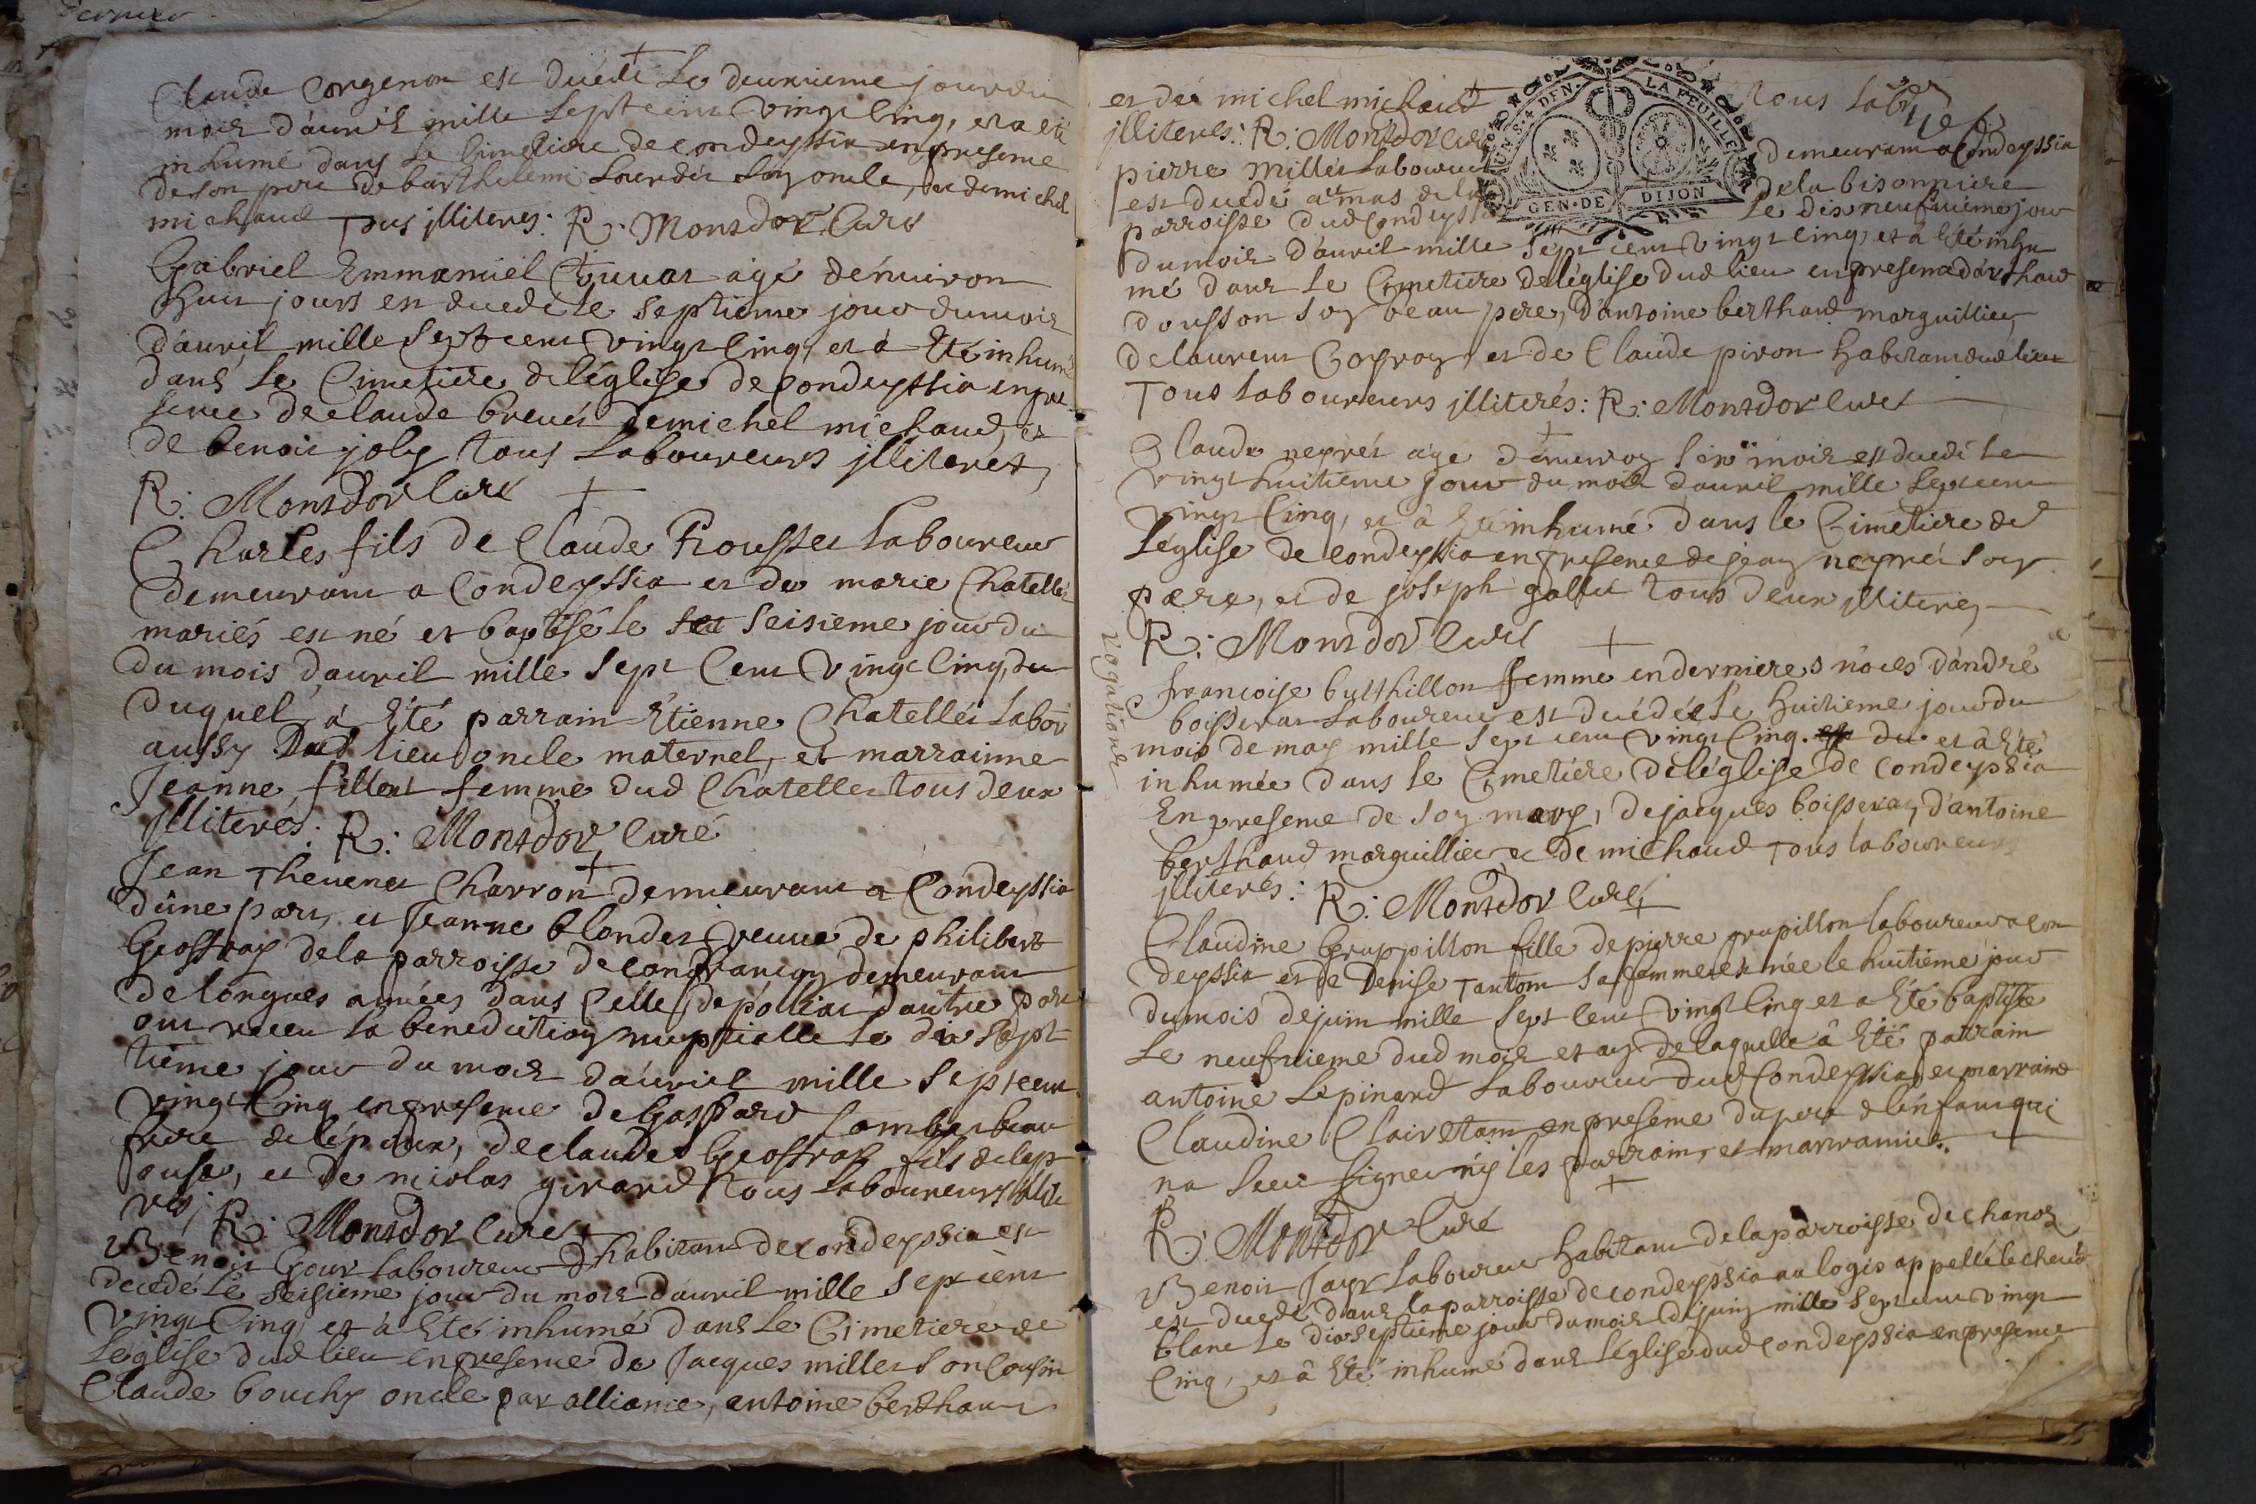 Claude Congenon est décedé Le deuxiême jour du
mois d'avril mille Sept cens vingt Cinq, et a été
inhumé dans Le Cimetiere de condeyssia en presence
de son pere de barthelemi Lourdér Son oncle, de michel
michaud Tous jlliterés: R: Montdor Curé
Gabriel Emmanüel âgé d'environ
huit jours est decedé le septieme jour du mois
d'avril mille Sept cens vingt Cinq, et â Eté inhumé
dans le Cimetiere de léglise de condeyssia en pre
sence de claude brevét de michel michaud, et
de benoit joly Tous Laboureurs jlliterés,
R: Montdor Curé
Charles fils de Claude Rousset Laboureur
demeurant a Condeyssia et de marie Chatellét
mariés est né et baptisé le seisieme jour du
du mois d'avril mille Sept Cens vingt Cinq, du
duquel à Eté parrain Etienne Chatellét Labor
aussy dud lieu oncle maternel, et marrainne
Jeanne fillet femme dud Chatellet tous deux
jlliterés: R: Montdor Curé
Jean Thevenet Charron demeurant a Condeyssia
d'une part, et Jeanne blondet veuve de philibert
Geoffray de la parroisse de confrançon demeurant
de longues années dans Celle de polliat dautre part
ont receu la benediction nuptialle le dix Sept
tieme jour du mois d'avril mille Sept cent
vingt Cinq en presence de Gaspard beau
frere de l'epoux, de claude Geoffray fils de lep
ouse, et de nicolas girard Tous Laboureurs jllite
rés; R: Montdor Curé
Bénoit Gour Laboureur habitant de condeyssia est
decedé Le seisieme jour du mois d'avril mille Sept cens
vingt Cinq et à Eté inhumé dans Le Cimetiere de
Léglise dud lieu en presence de Jacques millet son Cousin
Claude bouchy oncle par alliance, antoine berthaud
et de michel michaud Tous labrs
jlliterés: R: Montdor Curé
pierre millét Laboureur demeurant a Condeyssia
est decedé de la bisonniere
parroisse dud Condeyssia Le dix neufvieme jour
du mois d'avril mille Sept cens vingt Cinq, et à Eté inhu
mé dans Le Cimetiere de léglise dud lieu en presence
Son beau pere, d'antoine berthaud marguillier,
de laurens et de Claude piron habitans dud lieu
Tous laboureurs jlliterés: R: Montdor Curé
Claude neprét âgé d'environ Six mois est decedé Le
vingt huitieme jour du mois d'avril mille Sept cens
vingt Cinq, et â Eté inhumé dans le Cimetiere de
Léglise de condeyssia en presence de jean neprét Son
pere, et de joseph gallet tous deux jlliterés
R: Montdor Curé
rogations
françoise buthillon femme en dernieres nôces d'andré
boisserat Laboureur est decédée Le huitieme jour du
mois de may mille Sept cens vingt Cinq. du et à Eté
inhumée dans le Cimetiére de léglise de condeyssia
En presence de son mary, de jacques boisserat, d'antoine
berthaud marguillier et de michaud Tous laboureurs
jlliterés: R: Montdor Curé
Claudine Gruppillon fille de pierre grupillon laboureur a Con
deyssia et de Denise Tanton sa femme est née le huitiême jour
du mois de juin mille Sept Cens vingt Cinq et a Eté baptisée
Le neufvieme dud mois et an de laquelle â Eté parrain
antoine Lépinard Laboureur dud Condeyssia et marraine
Claudine en presence du pere de lénfant qui
na Sceu Signer ny les parrain, et marrainne.
R: Montdor Curé
Benoit Jayr Laboureur habitant de la parroisse de chanoz
est decedé dans la parroisse de condeyssia au logis appellé le cheval
blanc Le dix Septieme jour du mois de juin mille Sept cens vingt
Cinq, et â Eté inhumé dans léglise dud condeyssia en presence
GEN · DE DIJON
LA FEUILLE